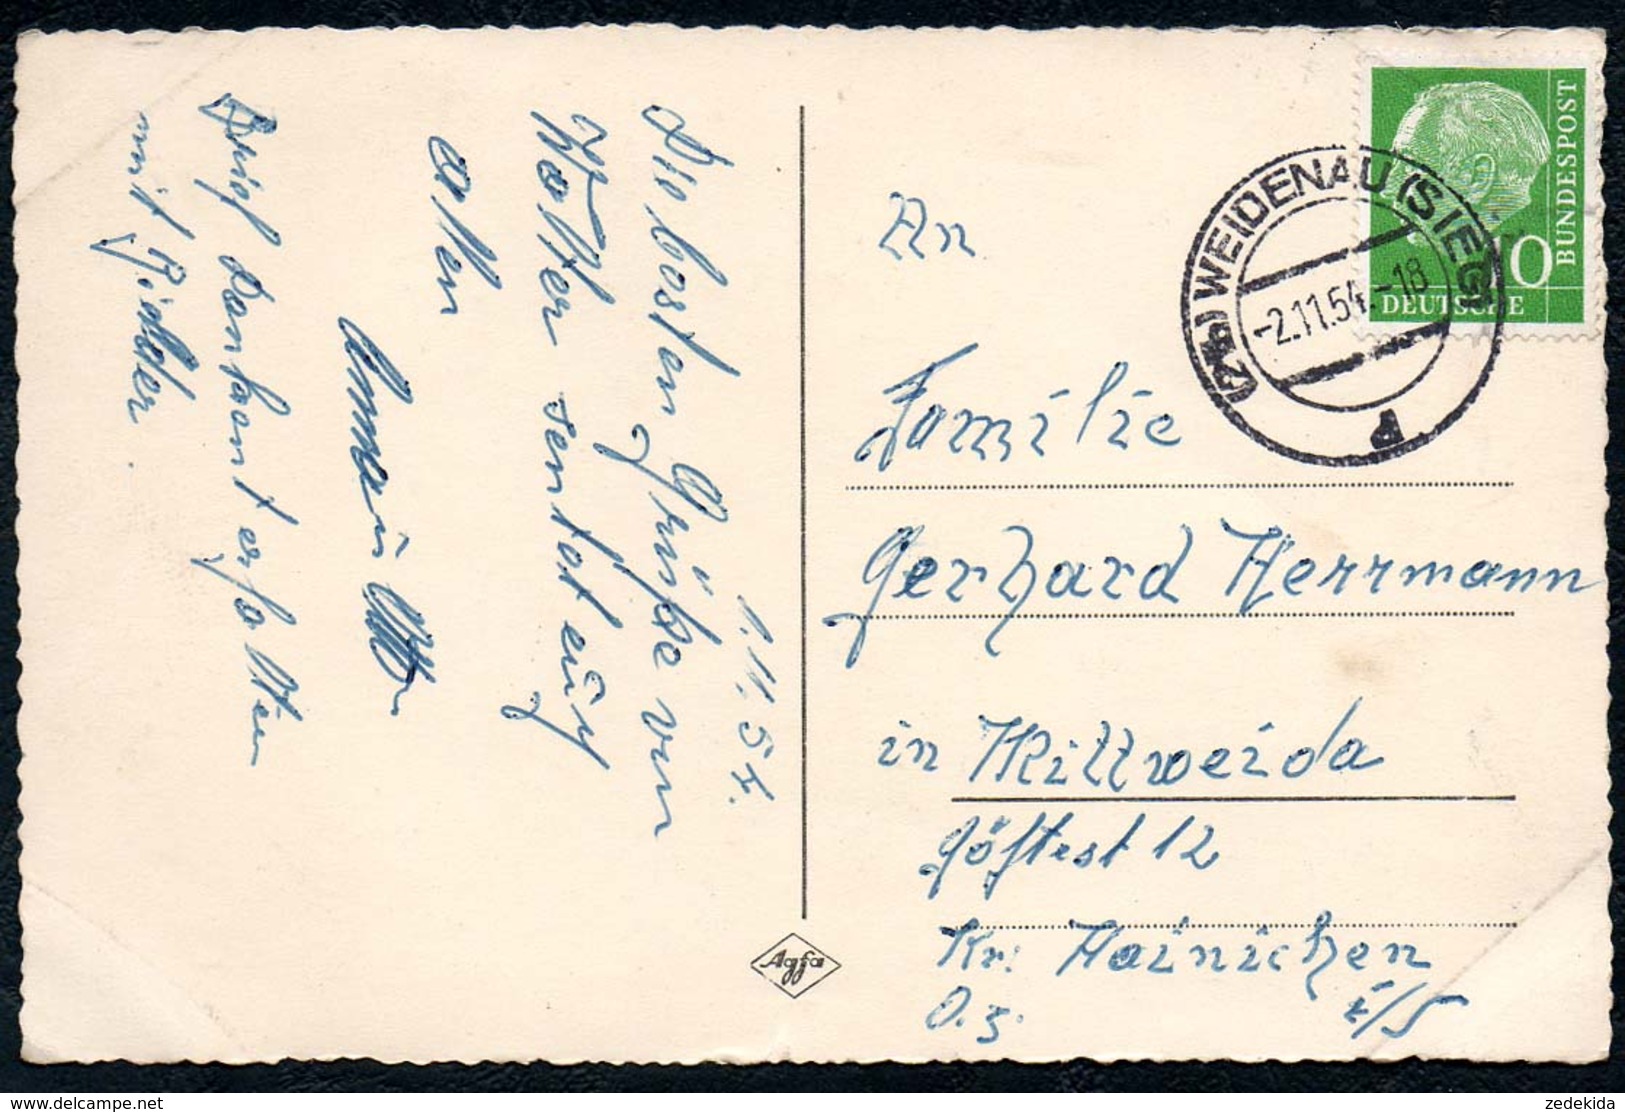 1.11.54.
Die besten Grüße von
Walter sendet euch
allen
Oma u.
Brief dankent erhalten
mit Bilder.
An
Familie
Gerhard Herrmann
in Mittweida
12
Kr: Hainichen
O.z. i/S
(21b) WEIDENAU (SIEG)
-2.11.54.-18
P
10
DEUTSCHE
BUNDESPOST
Agfa
www.delcampe.net
zedekida